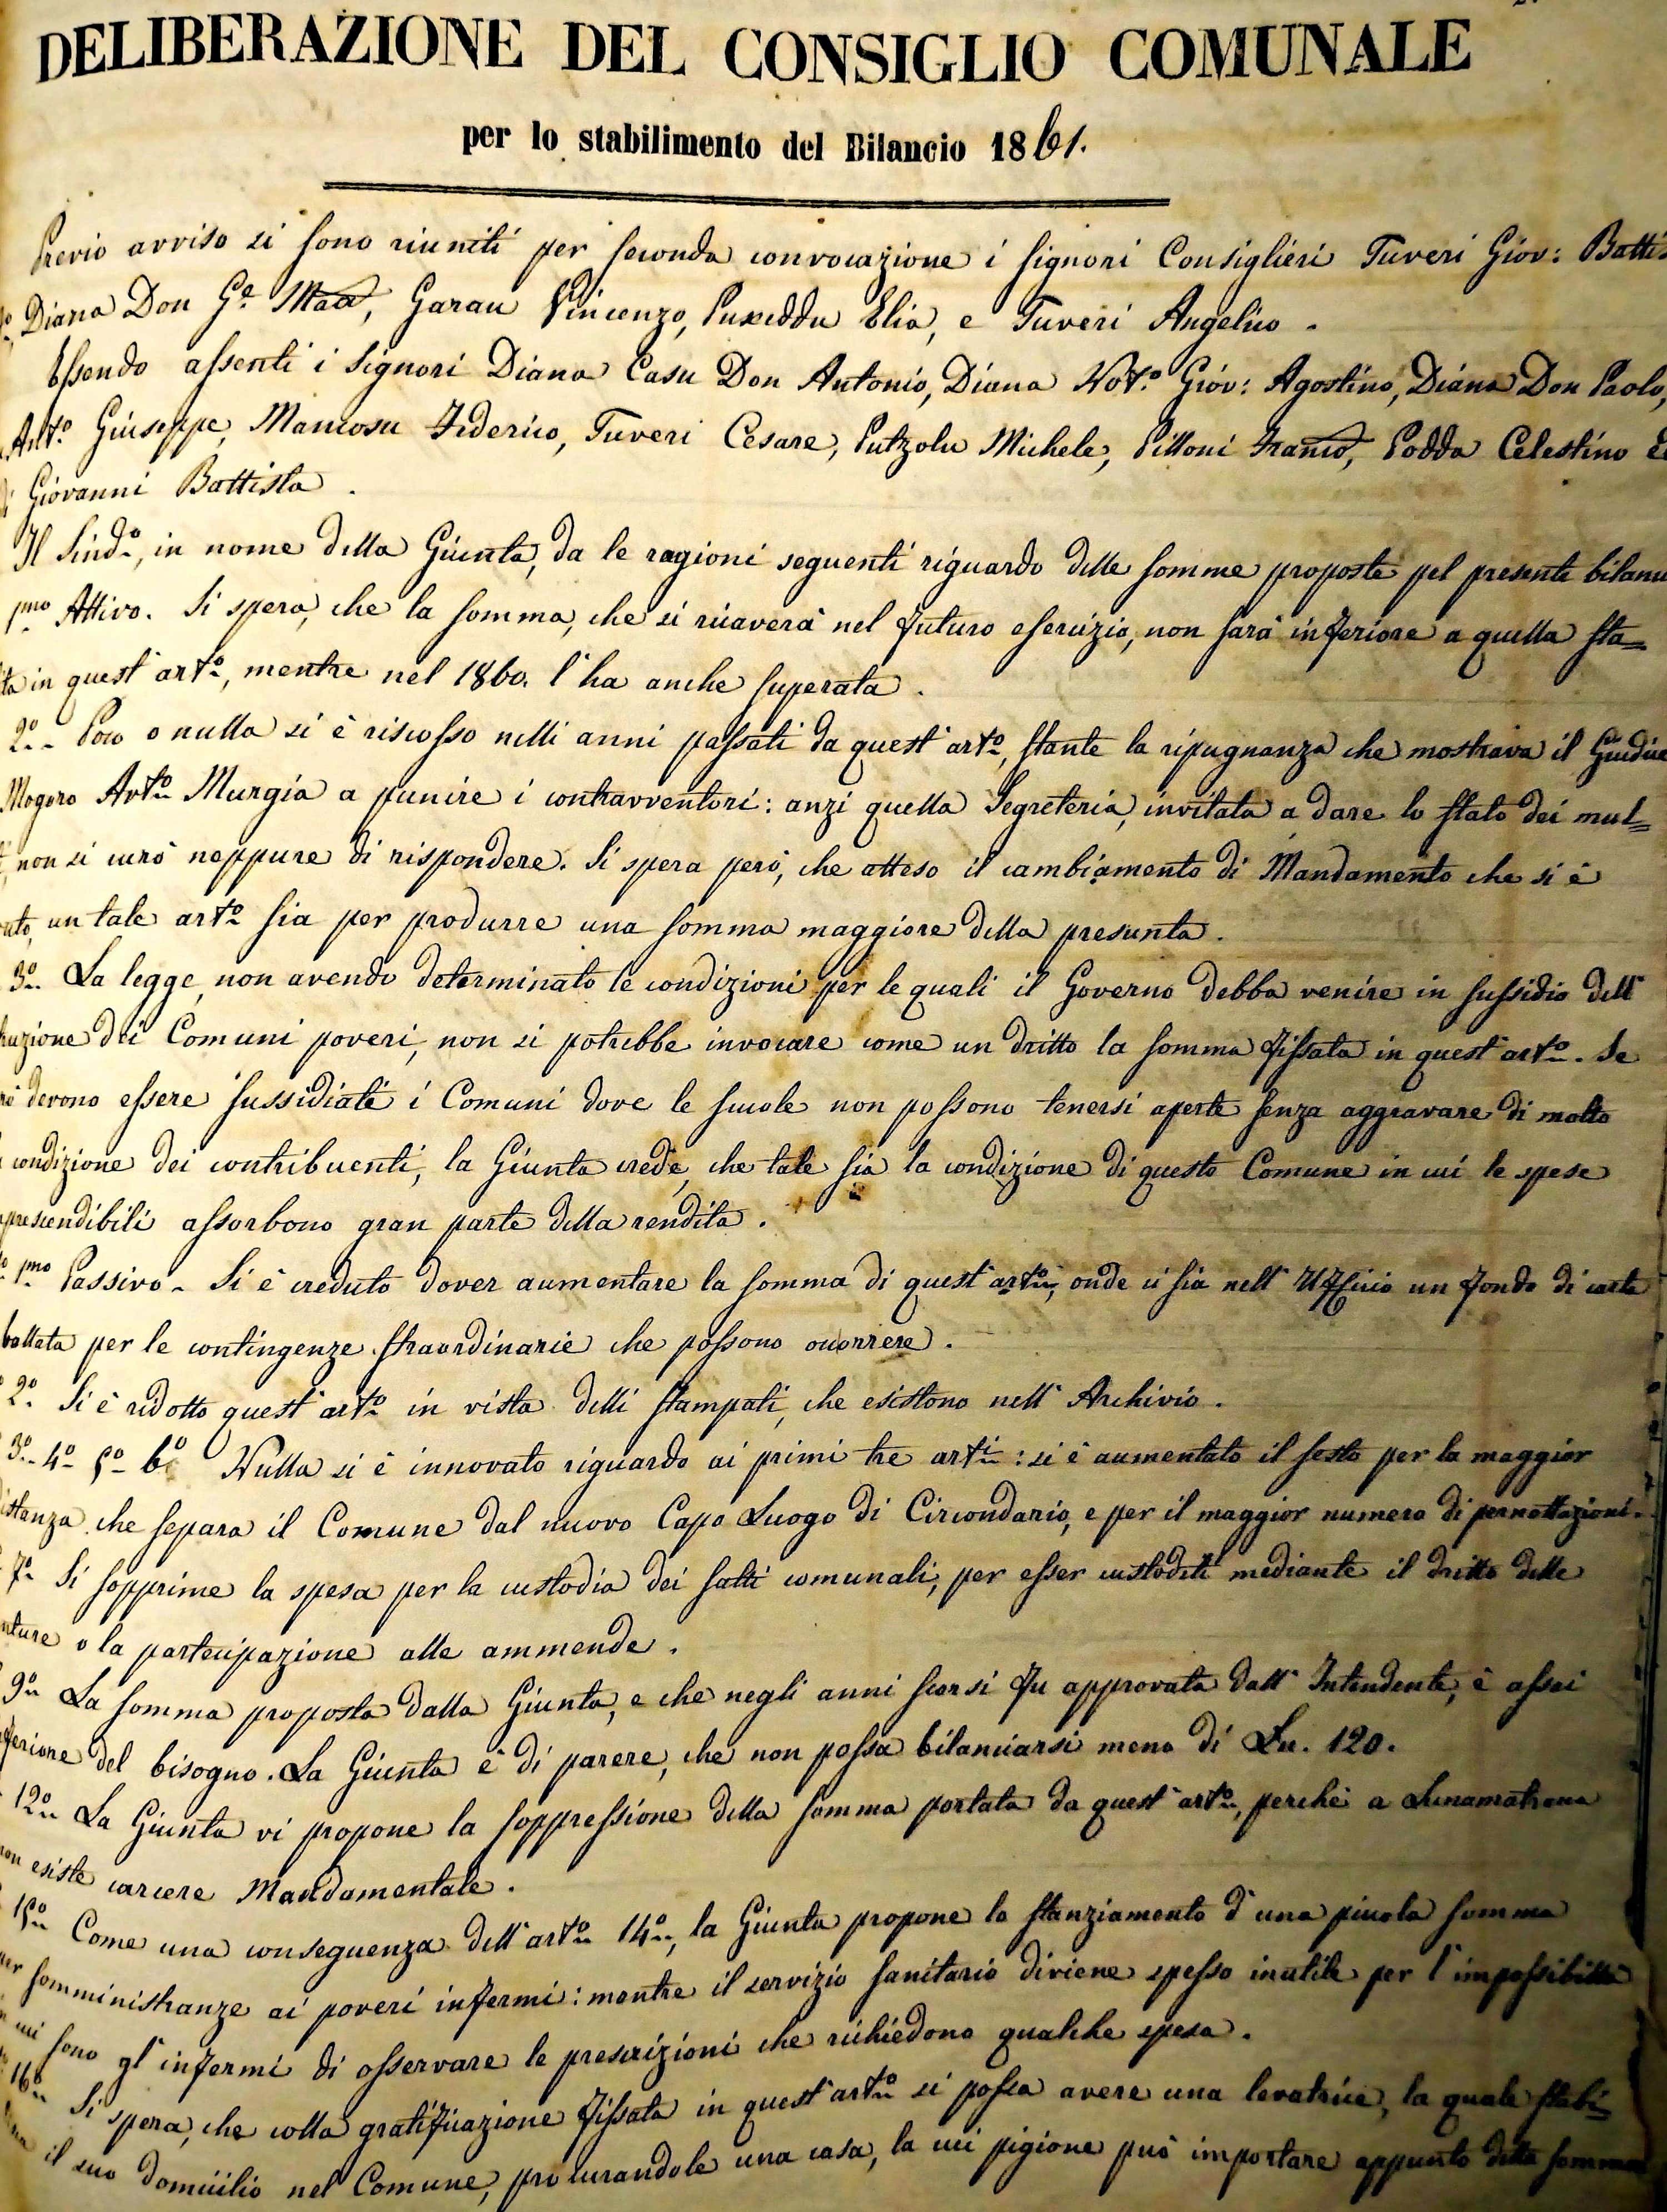 DELIBERAZIONE DEL CONSIGLIO COMUNALE
per lo stabilimento del Bilancio 1861.
Previo avviso si sono riuniti per seconda convocazione i signori Consiglieri Tuveri Giov: Battis
Diana Don Ge Maa, Garau Vincenzo, Puxeddu Elia, e Tuveri Angelico.
Essendo assenti i Signori Diana Casu Don Antonio, Diana Not.o Giov: Agostino, Diana Don Paolo,
Ant.o Giuseppe, Mancosu Federico, Tuveri Cesare, Putzolu Michele, Pilloni Franco, Podda Celestino e
Giovanni Battista.
Il Sind.o, in nome della Giunta, da le ragioni seguenti riguardo delle somme proposte pel presente bilanc
1mo Attivo. Si spera, che la somma, che si ricaverà nel futuro esercizio, non sarà inferiore a quella sta=
ta in quest'art.o, mentre nel 1860. l'ha anche superata.
2o. Poco o nulla si è riscosso nelli anni passati da quest'art.o, stante la ripugnanza che mostrava il Giudice
Mogoro Ant.o Murgia a punire i contravventori: anzi quella Segreteria, invitata a dare lo stato dei mul=
non si curò neppure di rispondere. Si spera però, che atteso il cambiamento di Mandamento che si è
uto, un tale art.o sia per produrre una somma maggiore della presunta.
3o. La legge, non avendo determinato le condizioni per le quali il Governo debba venire in sussidio dell'
ruzione dei Comuni poveri, non si potrebbe invocare come un dritto la somma fissata in quest'art.o. Se
rò devono essere sussidiati i Comuni dove le scuole non possono tenersi aperte senza aggravare di molto
condizione dei contribuenti, la Giunta crede, che tale sia la condizione di questo Comune in cui le spese
prescendibili assorbono gran parte della rendita.
1mo Passivo. Si è creduto dover aumentare la somma di quest'art.o, onde ci sia nell'Ufficio un fondo di carta
bollata per le contingenze straordinarie che possono occorrere.
2o. Si è ridotto quest'art.o in vista delli stampati, che esistono nell'Archivio.
3o. 4o 5o 6o Nulla si è innovato riguardo ai primi tre art.i: si è aumentato il sesto per la maggior
istanza che separa il Comune dal nuovo Capo Luogo di Circondario, e per il maggior numero di pernottazioni.
7o Si sopprime la spesa per la custodia dei salti comunali, per esser custoditi mediante il dritto delle
nture o la partecipazione alle ammende.
9o La somma proposta dalla Giunta, e che negli anni scorsi fu approvata dall'Intendente, è assai
feriore del bisogno. La Giunta è di parere, che non possa bilanciarsi meno di Ln. 120.
12o La Giunta vi propone la soppressione della somma portata da quest'art.o, perchè a Lunamatrona
non esiste carcere Mandamentale.
15o Come una conseguenza dell'art.o 14o, la Giunta propone lo stanziamento d'una piccola somma
per somministranze ai poveri infermi: mentre il servizio sanitario diviene spesso inutile per l'impossibilità
in cui sono gl'infermi di osservare le prescrizioni che richiedono qualche spesa.
16o Si spera, che colla gratificazione fissata in quest'art.o si possa avere una levatrice, la quale stabi=
il suo domicilio nel Comune, procurandole una casa, la cui pigione può importare appunto detta somma